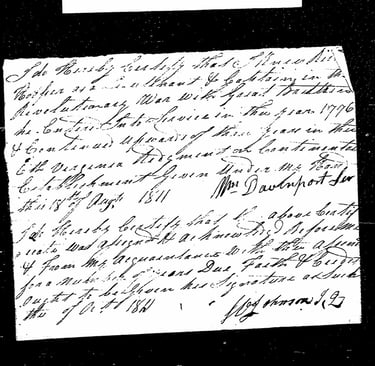 I do Hereby Certify that I Knew
Hooper as a Lieutenant & Captain in the
Revolutionary War with Great Brittian
he Entered Into Service in the year 1776
& Continued upwards of three years in the
6th Virginia Regiment on Continental
Establishment Given Under My Hand
this 18th of Augt 1811
Wm Davenport Senr
I do Hereby Certify that the above Certif
icate was Signed & Acknowledged Before me
& from my Acquaintance With the
for a Number of years Due Faith & Credit
Ought to be Given his Signature as Such
the of Octr 1811
Johnson J.P.